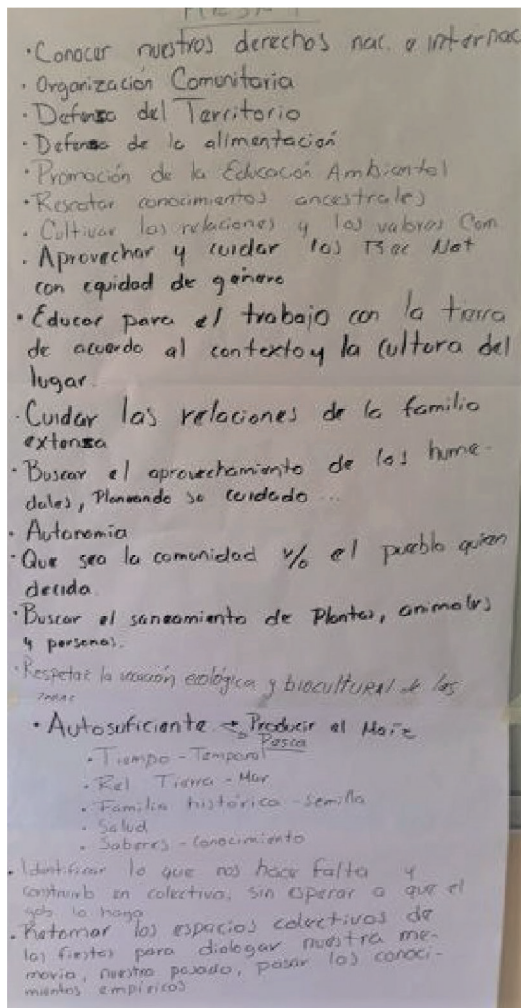 MESA 1
• Conocer nuestros derechos nac. e internac
• Organización Comunitaria
• Defensa del Territorio
• Defensa de la alimentación
• Promoción de la Educación Ambiental
• Rescatar conocimientos ancestrales
• Cultivar las relaciones y los valores Com
• Aprovechar y cuidar los Rec Nat
con equidad de género
• Educar para el trabajo con la tierra
de acuerdo al contexto y la cultura del
lugar.
• Cuidar las relaciones de la familia
extensa
• Buscar el aprovechamiento de los hume-
dales, Planeando su cuidado ...
• Autonomía
• Que sea la comunidad y/o el pueblo quien
decida.
• Buscar el saneamiento de Plantas, animales
y personas.
• Respetar la vocación ecológica y biocultural de las
• Autosuficiente → Producir el Maíz
Pesca
• Tiempo - Temporal
• Rel Tierra - Mar
• Familia histórica - semilla
• Salud
• Saberes - conocimiento
• Identificar lo que nos hace falta y
construirlo en colectivo, sin esperar a que el
gob lo haga
• Retomar los espacios colectivos de
las fiestas para dialogar nuestra me-
moria, nuestro pasado, pasar los conoci-
mientos empíricos